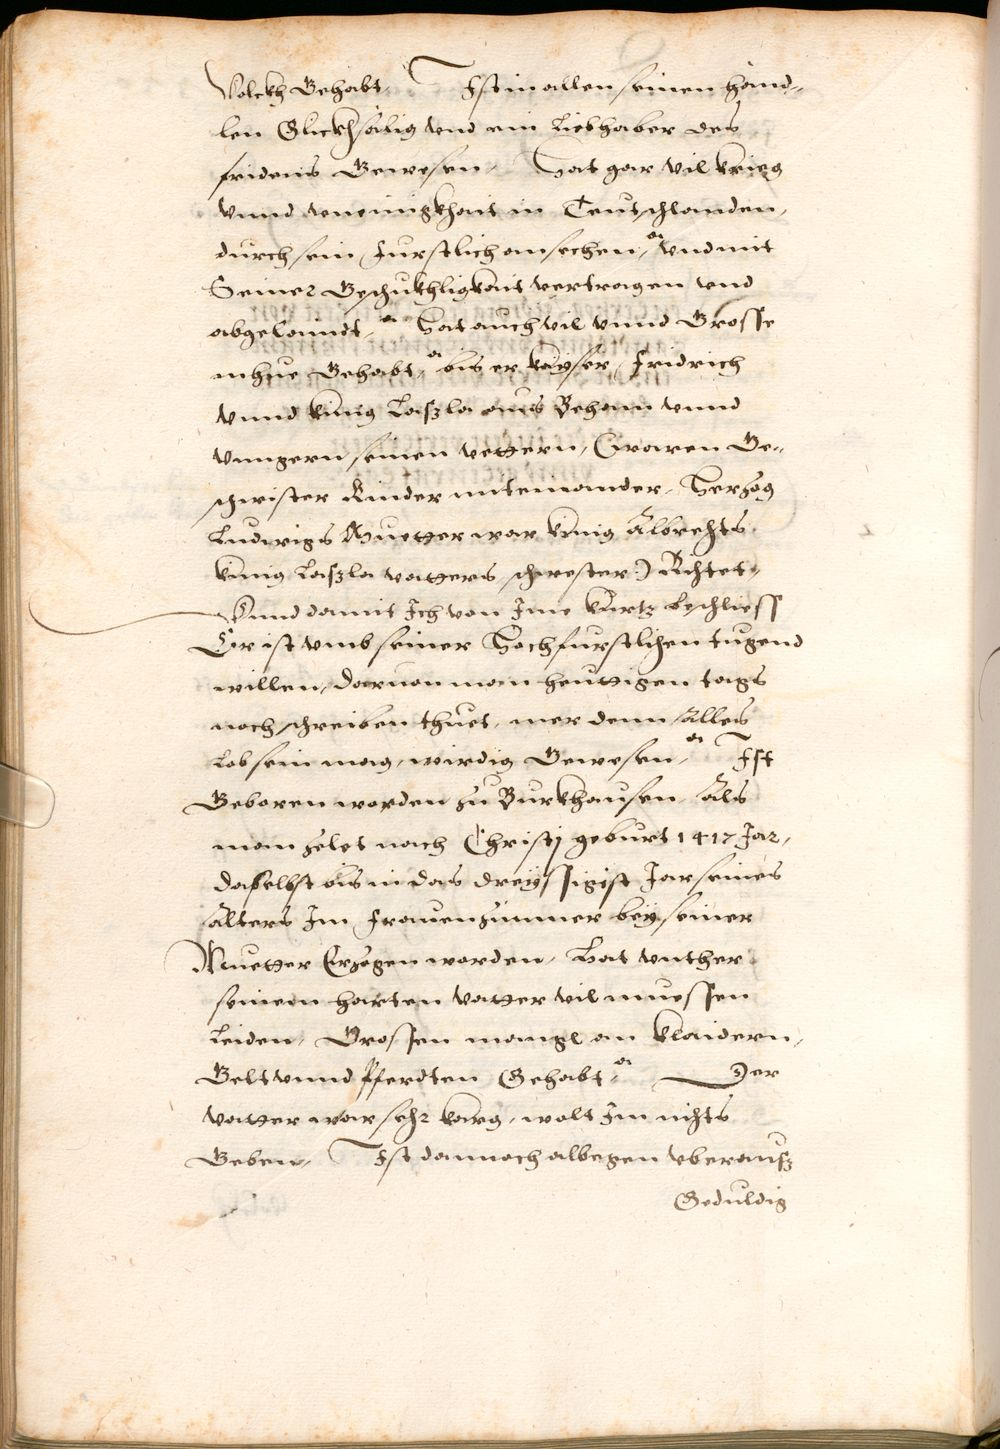 Volckh Gehabt. Ist in allen seinen händ-
len Glickhsälig vnd ein liebhaber des
fridens Gewesen, Hat gar vil krieg
vnnd vneinigkhait in Teutschlanden,
durch sein Furstlich ansechen, vnd mit
Seiner Geschickhligkait vertragen vnd
abgelaindt, Hat auch vil vnnd Grosse
mhue Gehabt, bis er kayser Fridrich
vnnd künig Laszla aus Beham vnnd
vnngern seinen vettern, (waren Ge-
schwister Kinder miteinander, Hertzog
Ludwigs Muetter war künig Albrechts
künig Laszla vatters schwester) Richtet,
Vnnd damit Ich von Ime kurtz beschliess
Er ist vmb seiner Hochfurstlichen tugend
willen, daruon man heuttigen tags
noch schreiben thuet, mer denn Alles
lob sein mag, wirdig Gewesen, Ist
Geboren worden zu Burkhausen, Als
man zelet nach Christj geburt 1417 Jar,
daselbst bis in das dreyssigist Jar seines
Alters Im Frauenzimmer bey seiner
Muetter Erzogen worden, Hat vnther
seinem harten vatter vil muessen
leiden, Grossen mangl an klaidern,
Gelt vnnd Pferdten Gehabt, Der
vatter war sehr karg, wolt Im nichts
Geben, Ist dannoch albegen vberausz
Geduldig